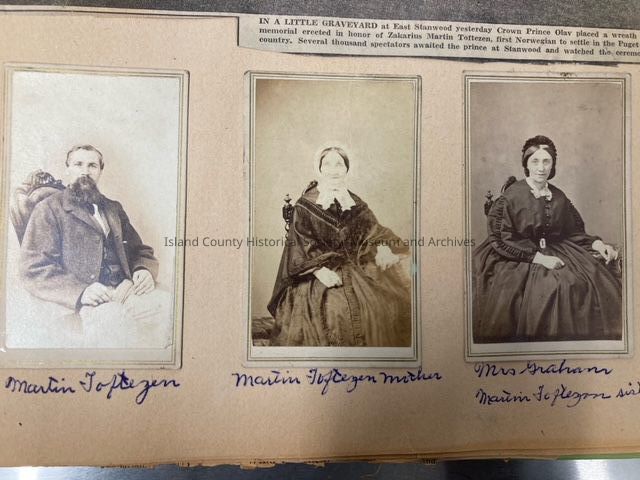 IN A LITTLE GRAVEYARD at East Stanwood yesterday Crown Prince Olav placed a wreath
memorial erected in honor of Zakarius Martin Toftezen, first Norwegian to settle in the Puget
country. Several thousand spectators awaited the prince at Stanwood and watched the ceremo
Island County Historical Society Museum and Archives
Martin Toftezen
Martin Toftezen mother
Mrs Graham
Martin Toftezen sist